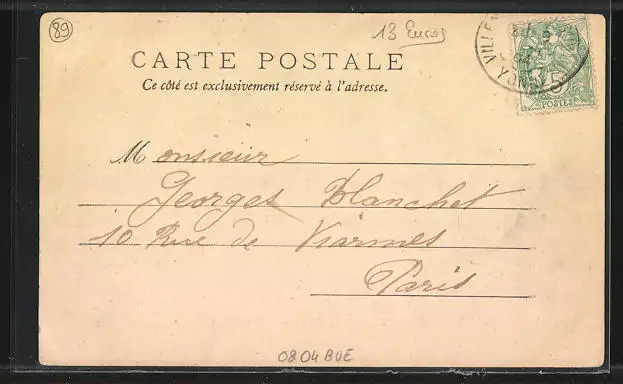 89
13 Euros
CARTE POSTALE
Ce côté est exclusivement réservé à l'adresse.
VILLE
YONNE
5
POSTES
Monsieur
Georges Blanchet
10 Rue de Viarmes
Paris
0804 BUE